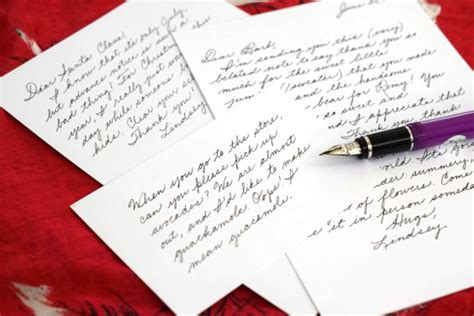 Dear Santa Claus,
I know that it's only July,
but advance notice is a
bad thing. For Christmas
year, I really just
day while someone
kids. Clear your
Thank you!
Lindsey
June
Dear Barb,
I'm sending you this (very)
belated note to say thank you so
much for the sweet little
(/sweater) that you made
and the handsome
bear for Remy! You
so sweet and
d I appreciate that
Thank you thank
When you go to the store,
can you please pick up
avocados? We are almost
out, and I'd like to make
guachamole. Oops! I
mean guacamole.
orld
der summery,
of flowers. Come
it in person some
Hugs,
Lindsey